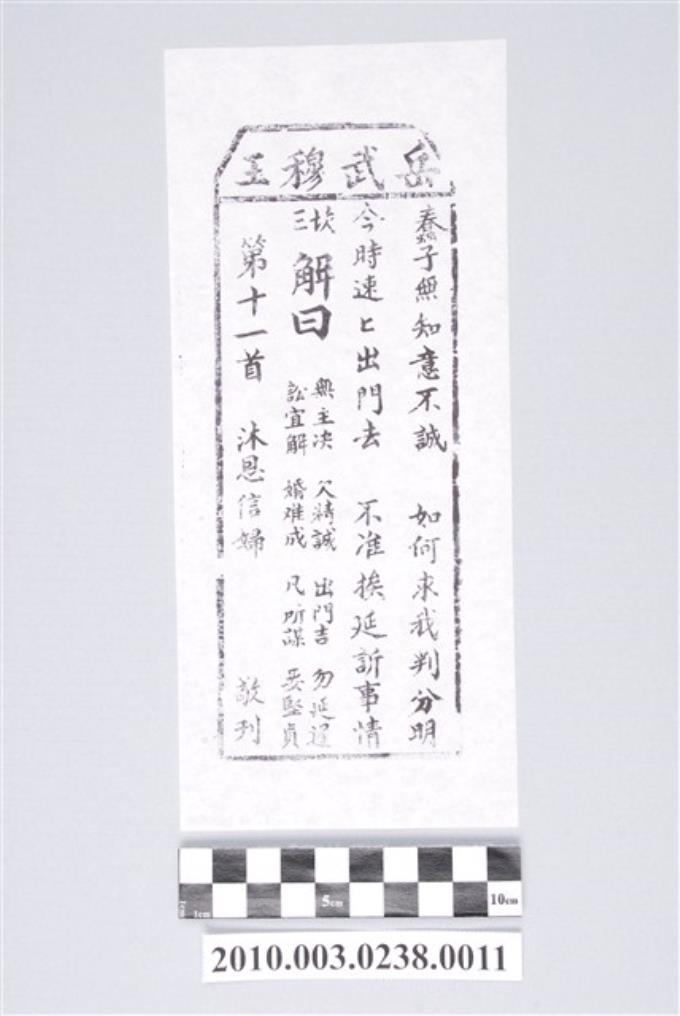 岳武穆王
蠢子無知意不誠 如何求我判分明
今時速匕出門去 不准挨延訴事情
坎三
解曰
無主决 欠精誠 出門吉 勿延遲
訟宜解 婚难成 凡所謀 要堅貞
第十一首 沐恩信婦 敬刊
1cm 5cm 10cm
2010.003.0238.0011